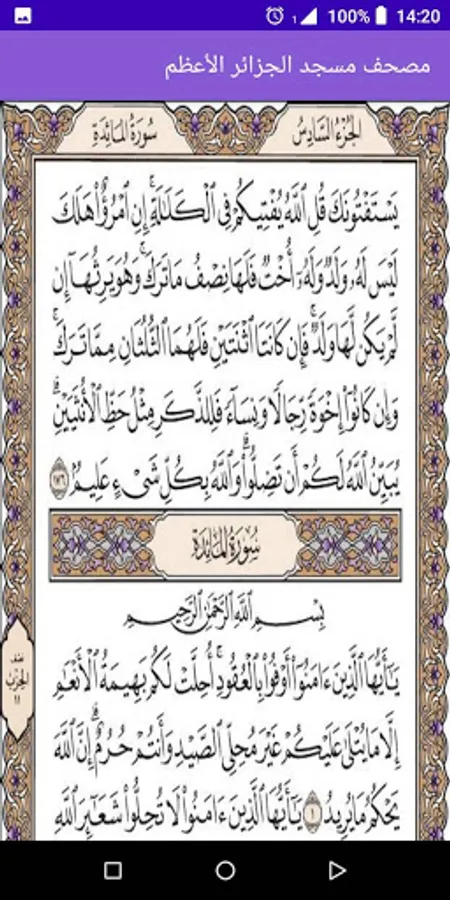 1 100% 14:20
مصحف مسجد الجزائر الأعظم
سُورَةُ المَائِدَةِ الجُزْءُ السَّادِسُ
يَسْتَفْتُونَكَ قُلِ ٱللَّهُ يُفْتِيكُمْ فِى ٱلْكَلَٰلَةِۚ إِنِ ٱمْرُؤٌا۟ هَلَكَ
لَيْسَ لَهُۥ وَلَدٌ وَلَهُۥٓ أُخْتٌ فَلَهَا نِصْفُ مَا تَرَكَۚ وَهُوَ يَرِثُهَآ إِن
لَّمْ يَكُن لَّهَا وَلَدٌۚ فَإِن كَانَتَا ٱثْنَتَيْنِ فَلَهُمَا ٱلثُّلُثَانِ مِمَّا تَرَكَۚ
وَإِن كَانُوٓا۟ إِخْوَةً رِّجَالًا وَنِسَآءً فَلِلذَّكَرِ مِثْلُ حَظِّ ٱلْأُنثَيَيْنِۗ
يُبَيِّنُ ٱللَّهُ لَكُمْ أَن تَضِلُّوا۟ۗ وَٱللَّهُ بِكُلِّ شَىْءٍ عَلِيمٌۢ ١٧٦
سُورَةُ المَائِدَةِ
بِسْمِ ٱللَّهِ ٱلرَّحْمَٰنِ ٱلرَّحِيمِ
يَٰٓأَيُّهَا ٱلَّذِينَ ءَامَنُوٓا۟ أَوْفُوا۟ بِٱلْعُقُودِۚ أُحِلَّتْ لَكُم بَهِيمَةُ ٱلْأَنْعَٰمِ
إِلَّا مَا يُتْلَىٰ عَلَيْكُمْ غَيْرَ مُحِلِّى ٱلصَّيْدِ وَأَنتُمْ حُرُمٌۗ إِنَّ ٱللَّهَ
يَحْكُمُ مَا يُرِيدُ ١ يَٰٓأَيُّهَا ٱلَّذِينَ ءَامَنُوا۟ لَا تُحِلُّوا۟ شَعَٰٓئِرَ ٱللَّهِ
نصف
الحزب
١١